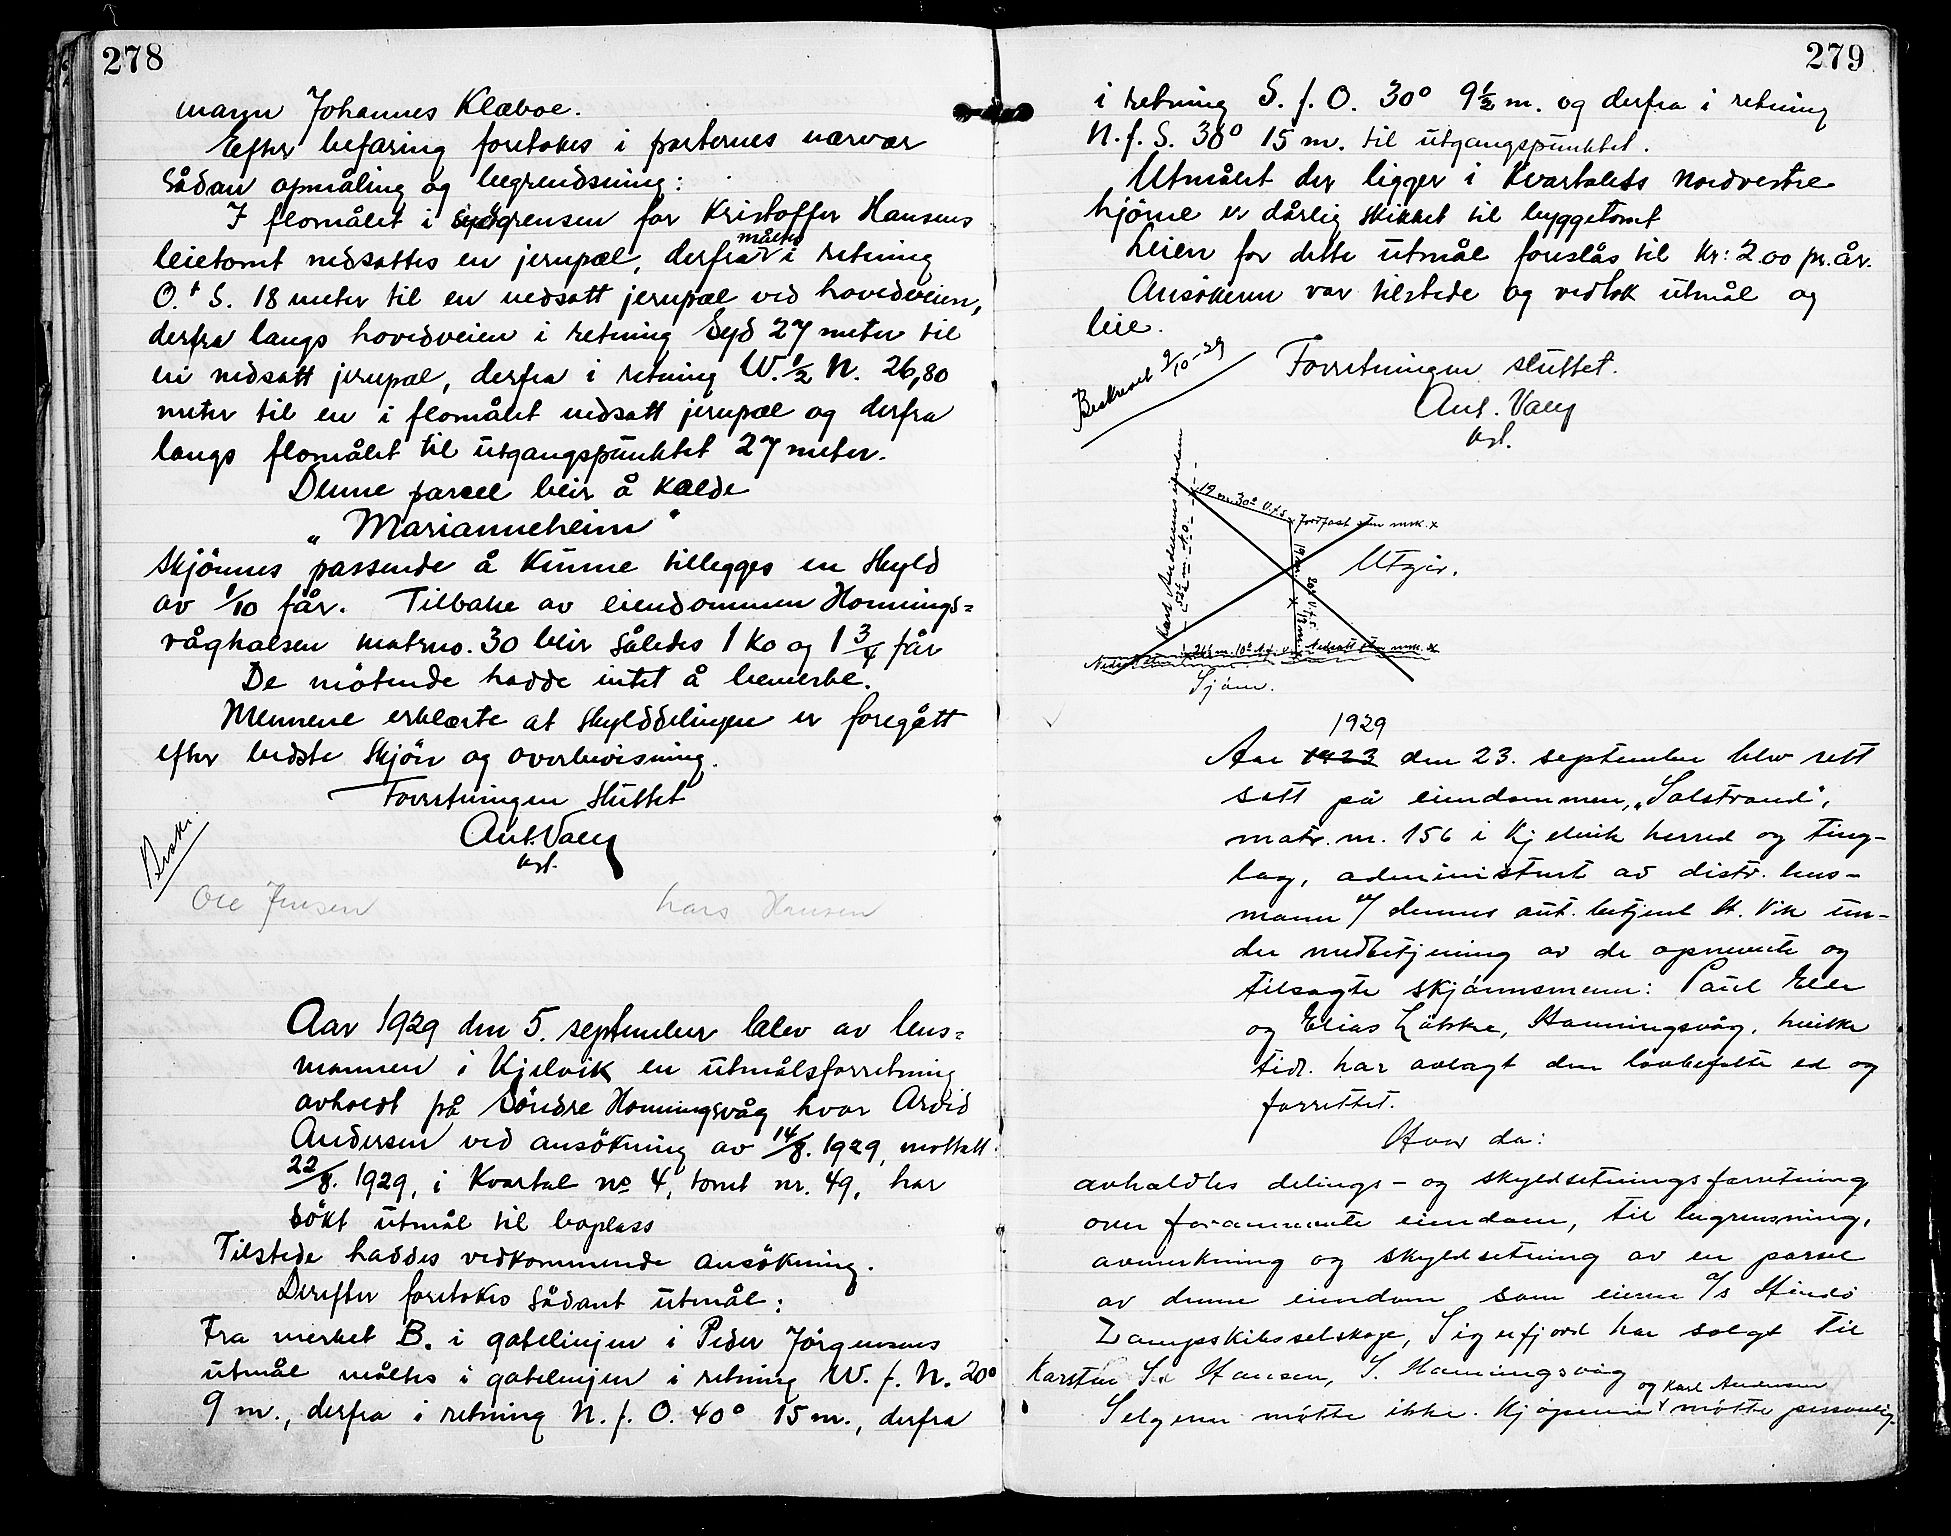 278
mann Johannes Klæboe.
Efter befaring foretokes i parternes nærvær
sådan opmåling og begrendsning:
I flomålet i sydgrensen for Kristoffer Hansens
leietomt nedsattes en jernpæl, derfra måltes i retning
O. t S. 18 meter til en nedsatt jernpæl ved hovedveien,
derfra langs hovedveien i retning Syd 27 meter til
en nedsatt jernpæl, derfra i retning W. ½ N. 26,80
meter til en i flomålet nedsatt jernpæl og derfra
langs flomålet til utgangspunktet 27 meter.
Denne parcel blir å kalde
„Marianneheim"
Skjönnes passende å kunne tillegges en skyld
av 1/10 får. Tilbake av eiendommen Honnings=
våghalsen matrno. 30 blir således 1 ko og 1 3/4 får
De mötende hadde intet å bemerke.
Mennene erklærte at skylddelingen er foregått
efter bedste skjön og overbevisning.
Forretningen sluttet
Ant. Valey
kst.
Beskr.
Ole Jensen
Lars Hansen
Aar 1929 den 5. september blev av lens=
mannen i Kjelvik en utmålsforretning
avholdt på Söndre Honningsvåg hvor Arvid
Andersen ved ansökning av 14/8. 1929, mottatt
22/8. 1929, i Kvartal no 4, tomt nr. 49, har
sökt utmål til boplass
Tilstede haddes vedkommende ansökning.
Derefter foretokes sådant utmål:
Fra merket B. i gatelinjen i Peder Jörgensens
utmål måltes i gatelinjen i retning W. f. N. 20°
9 m., derfra i retning N. f. O. 40° 15 m., derfra
279
i retning S. f. O. 30° 9½ m. og derfra i retning
N. f. S. 30° 15 m. til utgangspunktet.
Utmålet der ligger i Kvartalets nordvestre
hjörne er dårlig skikket til byggetomt
Leien for dette utmål foreslås til kr: 2.00 pr. år.
Ansökeren var tilstede og vedtok utmål og
leie.
Beskrevet 9/10-29
Forretningen sluttet.
Ant. Valey
kst.
19 m. 30° V.t.S.
Jordfast sten mrk. x
Utgår.
Nedsatt sten mrk. x
Sjöen.
1929
Aar 1923 den 23. september blev rett
satt på eiendommen, „Solstrand",
matr. nr. 156 i Kjelvik herred og ting-
lag, administrert av distr. lens-
mann v/ dennes aut. betjent H. Vik un-
der medbetjening av de opnevnte og
tilsagte skjönnsmenn: Paul Elde
og Elias Lökke, Honningsvåg, hvilke
tidl. har avlagt den lovbefalte ed og
forrettet.
Hvor da:
avholdtes delings- og skyldsetningsforretning
over forannevnte eiendom, til begrensning,
avmerkning og skyldsetning av en parsel
av denne eiendom som eieren A/s Hindö
Dampskibsselskap, Sigerfjord har solgt til
Karsten S. Hansen, S. Honningsvåg
Selgeren mötte ikke. Kjöperen og Karl Andersen mötte personlig.